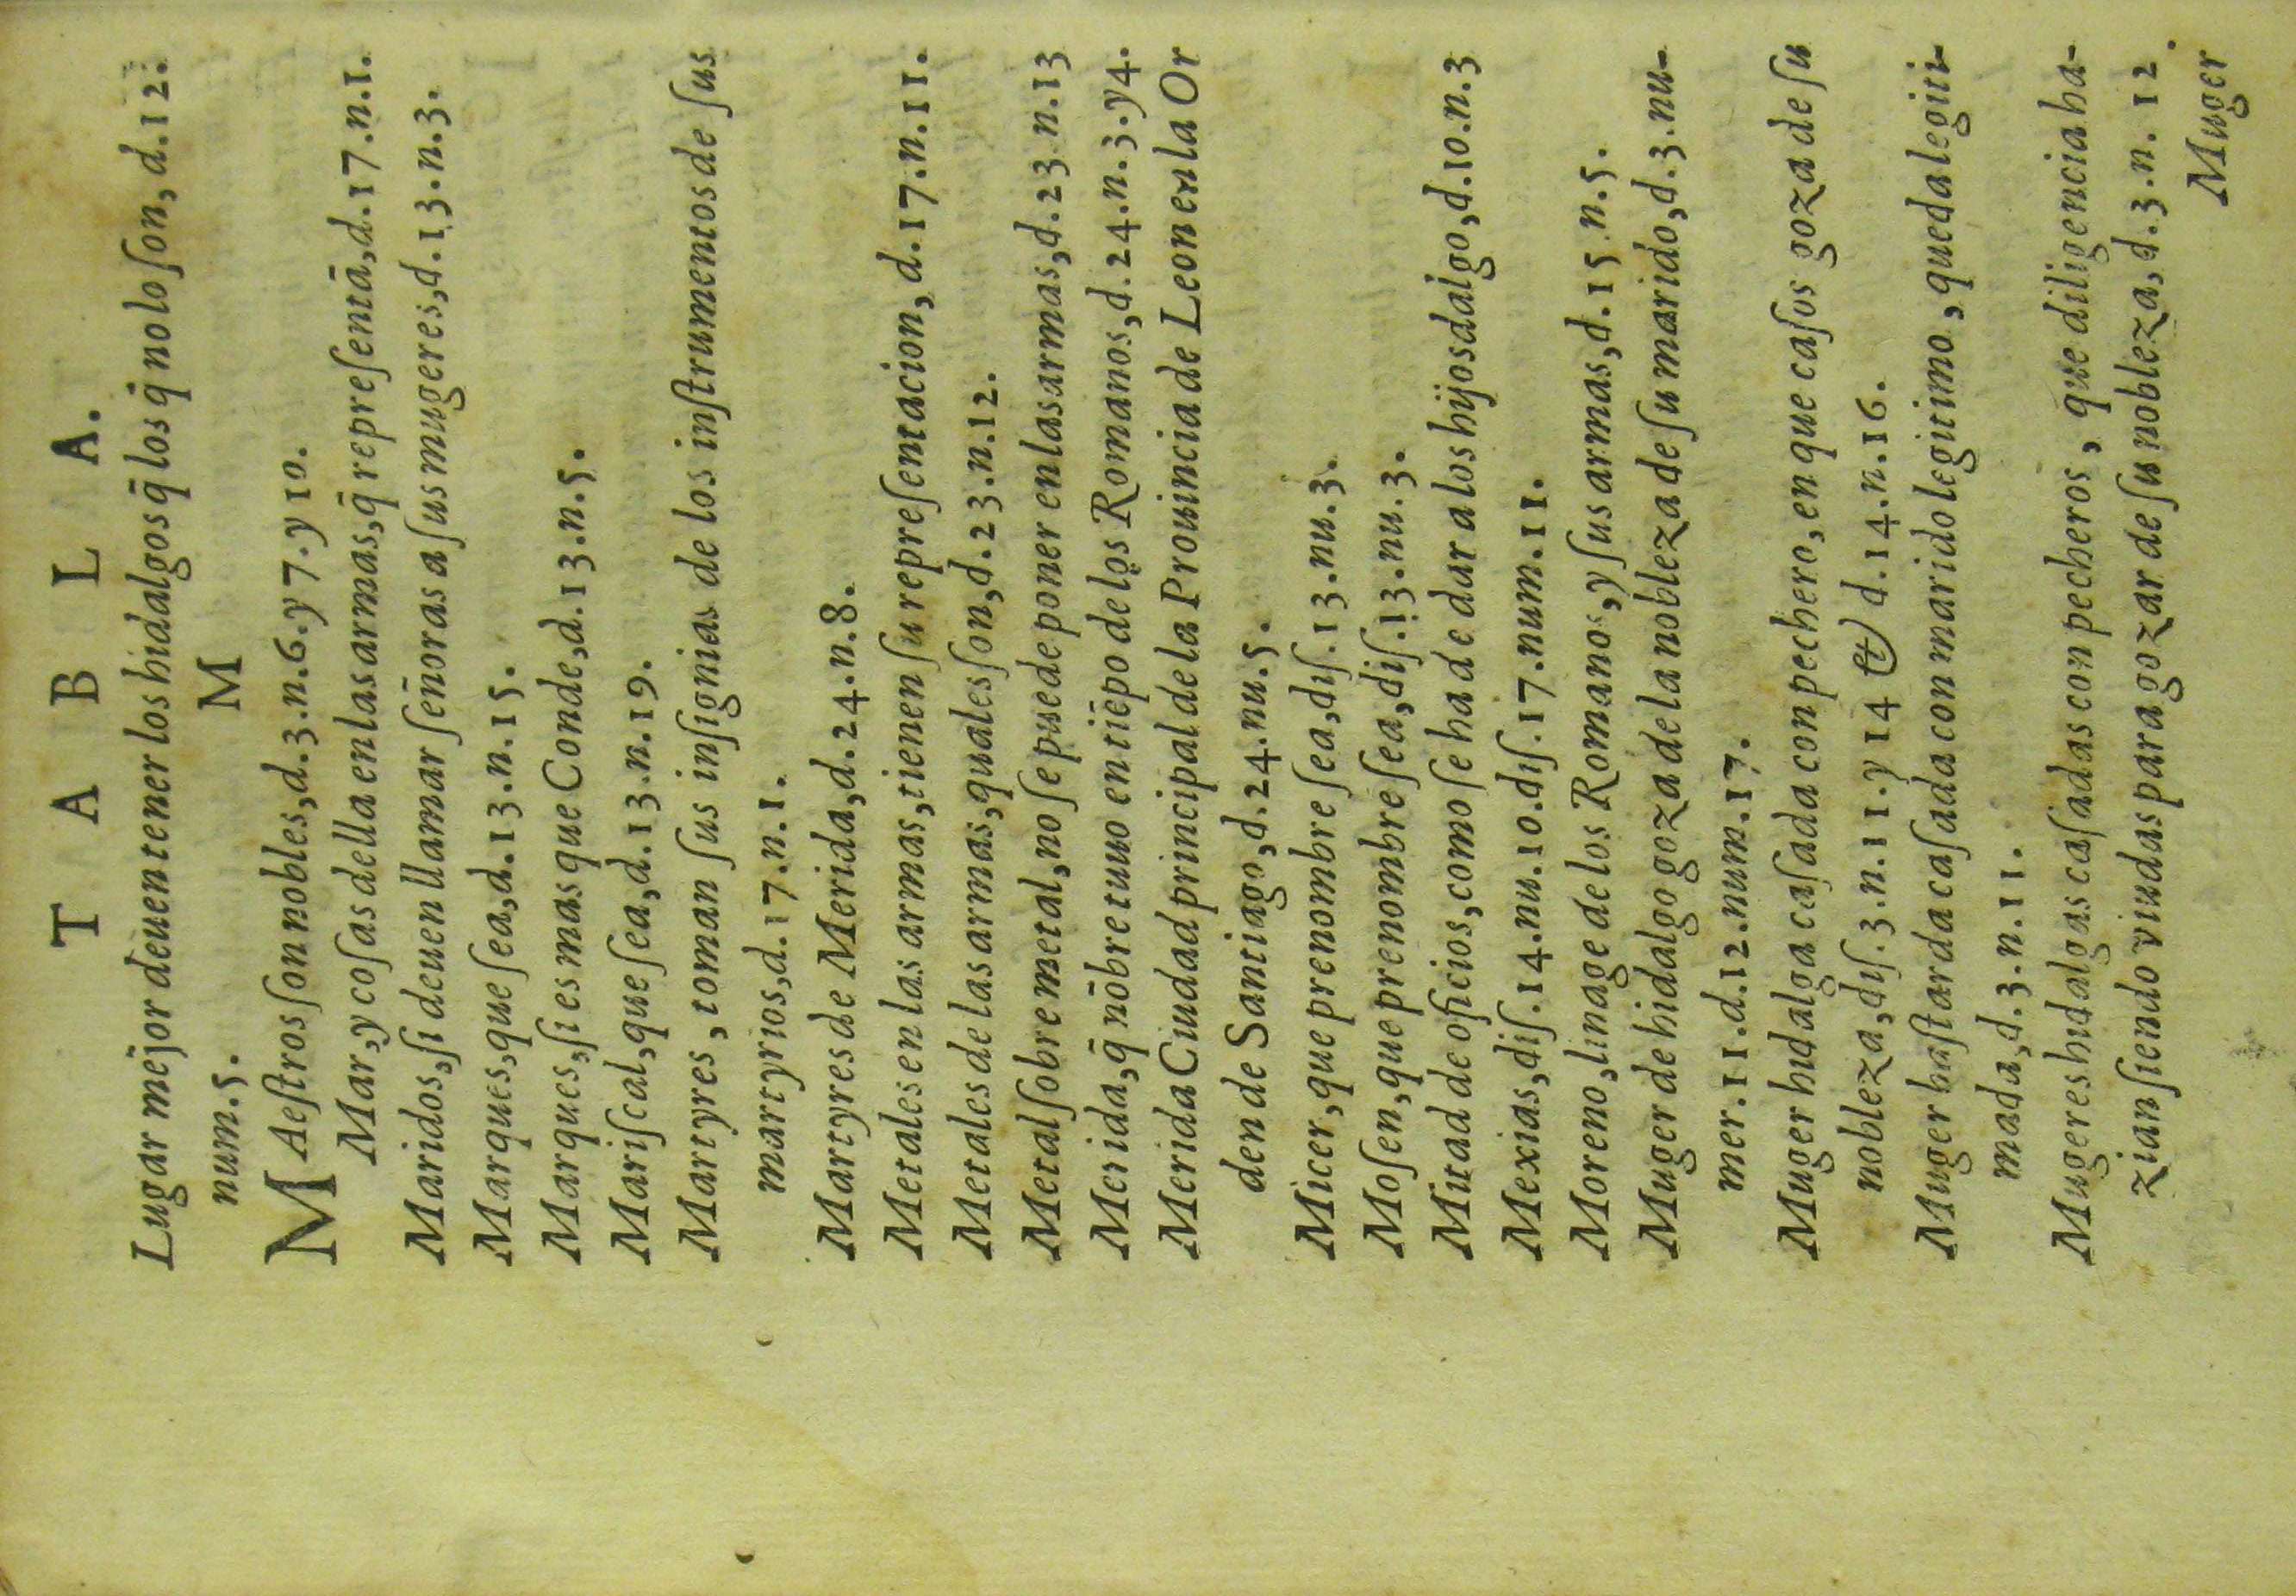 T A B L A.
Lugar mejor deuen tener los hidalgos q̄ los q̄ no lo ſon, d.12.
num.5.
M
MAeſtros ſon nobles, d.3.n.6.y 7.y 10.
Mar, y coſas della en las armas, q̄ repreſentā, d.17.n.1.
Maridos, ſi deuen llamar ſeñoras a ſus mugeres, d.13.n.3.
Marques, que ſea, d.13.n.15.
Marques, ſi es mas que Conde, d.13.n.5.
Mariſcal, que ſea, d.13.n.19.
Martyres, toman ſus inſignias de los inſtrumentos de ſus
martyrios, d.17.n.1.
Martyres de Merida, d.24.n.8.
Metales en las armas, tienen ſu repreſentacion, d.17.n.11.
Metales de las armas, quales ſon, d.23.n.12.
Metal ſobre metal, no ſe puede poner en las armas, d.23 n.13
Merida, q̄ nōbre tuuo en tiēpo de los Romanos, d.24.n.3.y4.
Merida Ciudad principal de la Prouincia de Leon en la Or
den de Santiago, d.24.nu.5.
Micer, que prenombre ſea, diſ.13.nu.3.
Moſen, que prenombre ſea, diſ.13.nu.3.
Mitad de oficios, como ſe ha de dar a los hijosdalgo, d.10.n.3
Mexias, diſ.14.nu.10.diſ.17.num.11.
Moreno, linage de los Romanos, y ſus armas, d.15 n.5.
Muger de hidalgo goza de la nobleza de ſu marido, d.3.nu-
mer.11.d.12.num.17.
Muger hidalga caſada con pechero, en que caſos goza de ſu
nobleza, diſ.3.n.11.y 14 & d.14.n.16.
Muger baſtarda caſada con marido legitimo, queda legiti-
mada, d.3.n.11.
Mugeres hidalgas caſadas con pecheros, que diligencia ha-
zian ſiendo viudas para gozar de ſu nobleza, d.3.n.12.
Muger